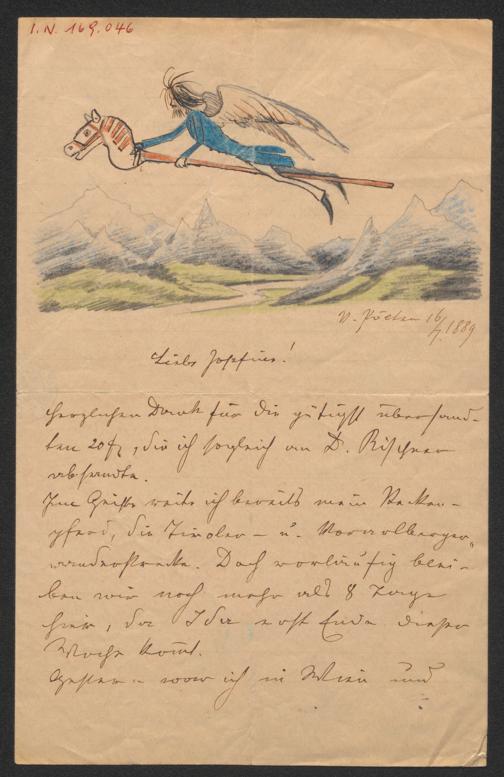 I.N. 169.046
V. Pölten 16/7. 1889
Liebe Josefine!
Herzlichen Dank für die gütigst übersand-
ten 20 fl, die ich sogleich an D. Kirchner
absandte.
Im Geiste reite ich bereits mein Stecken-
pferd, die Tiroler- u. Vorarlberger
wanderstrecke. Doch vorläufig blei-
ben wir noch mehr als 8 Tage
hier, da Ida erst Ende dieser
Woche kommt.
Gestern war ich in Wien und